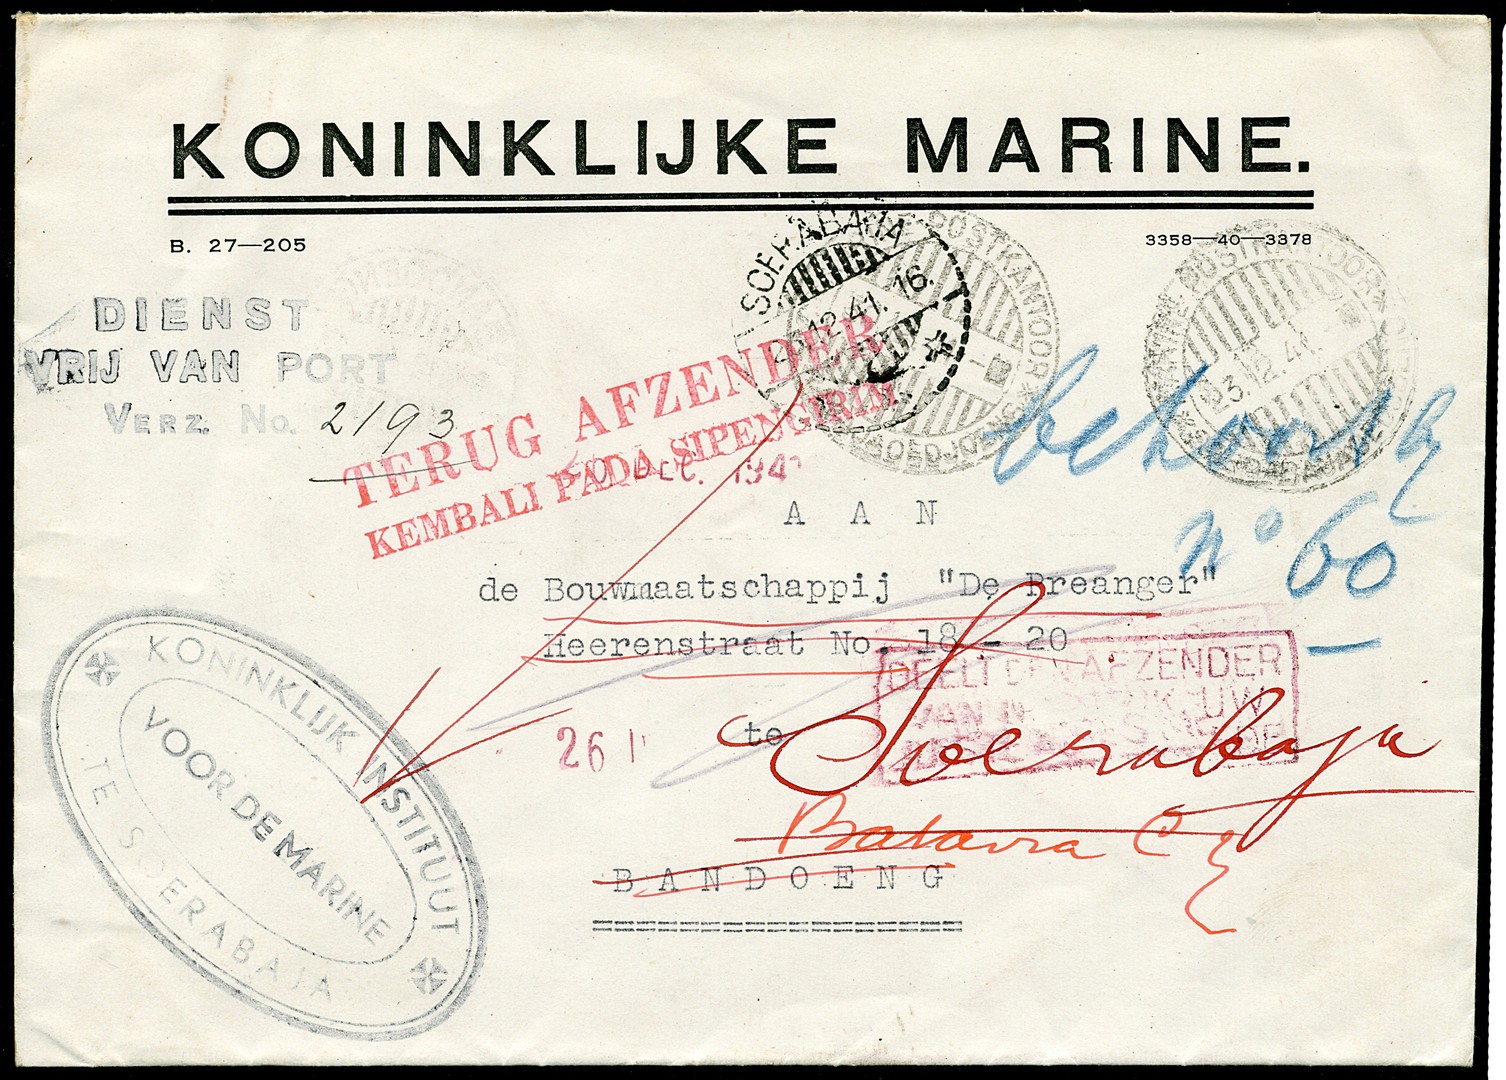 KONINKLIJKE MARINE.
B. 27—205
3358—40—3378
DIENST
VRIJ VAN PORT
VERZ. No. 2193
SOERABAJA
12.41. 16.
POSTKANTOOR
MARINE POSTKANTOOR
SOERABAJA
23.12.41
TERUG AFZENDER
KEMBALI PADA SIPENGIRIM
DEC. 194
behoort bij
no 60
A A N
de Bouwmaatschappij "De Preanger"
Heerenstraat No. 18 - 20
DEELT DEN AFZENDER
VAN UW
26
te
Soerabaja
Batavia C
B A N D O E N G
KONINKLIJK INSTITUUT
VOOR DE MARINE
TE SOERABAJA